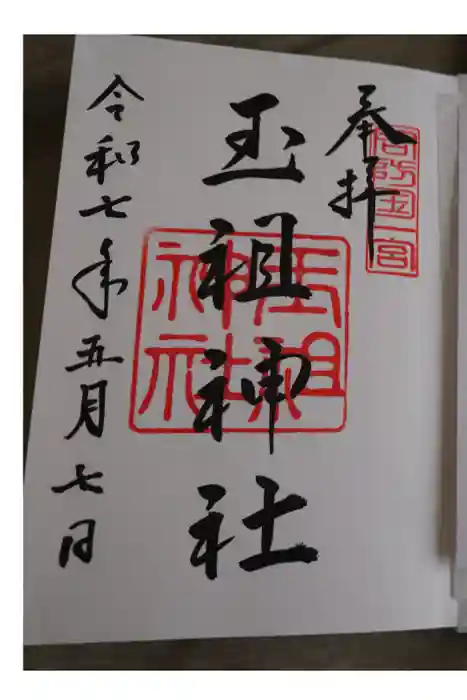 奉拝
周防国一宮
玉祖神社
玉祖神社
令和七年五月七日